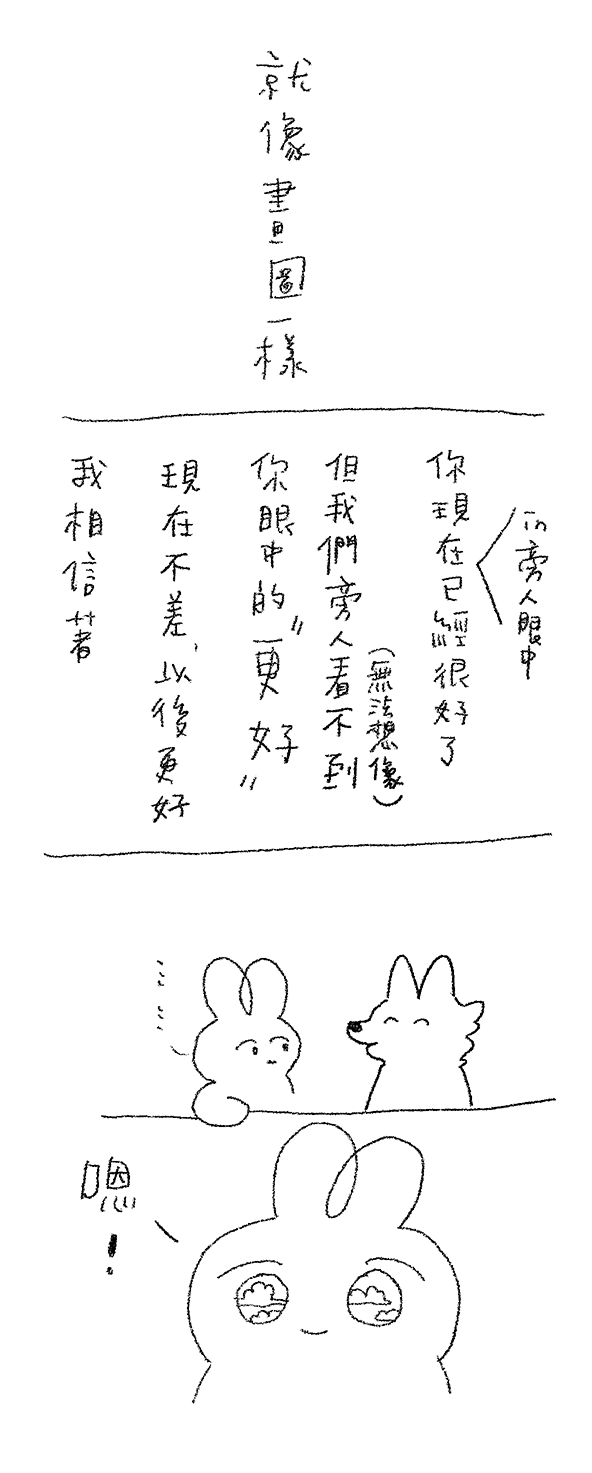 就像畫圖一樣
in旁人眼中
你現在已經很好了
(無法想像)
但我們旁人看不到
你眼中的"更好"
現在不差，以後更好
我相信著
⋯⋯
嗯!